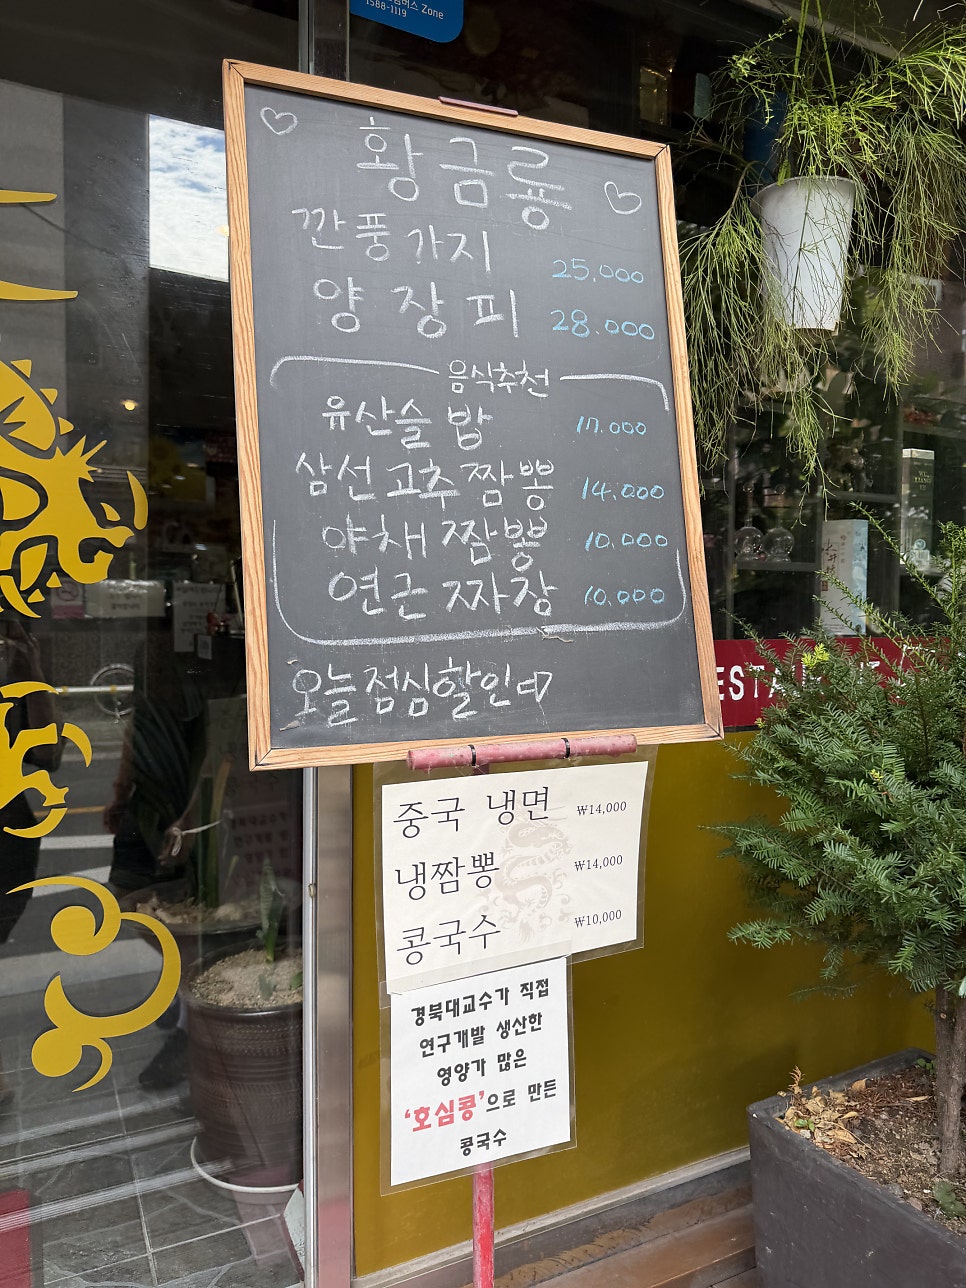 버스 Zone
1588-1119
황금룡
깐풍가지 25,000
양장피 28.000
음식추천
유산슬밥 17.000
삼선고추짬뽕 14.000
야채짬뽕 10.000
연근짜장 10.000
오늘점심할인
중국 냉면 ₩14,000
냉짬뽕 ₩14,000
콩국수 ₩10,000
경북대교수가 직접
연구개발 생산한
영양가 많은
‘호심콩’으로 만든
콩국수